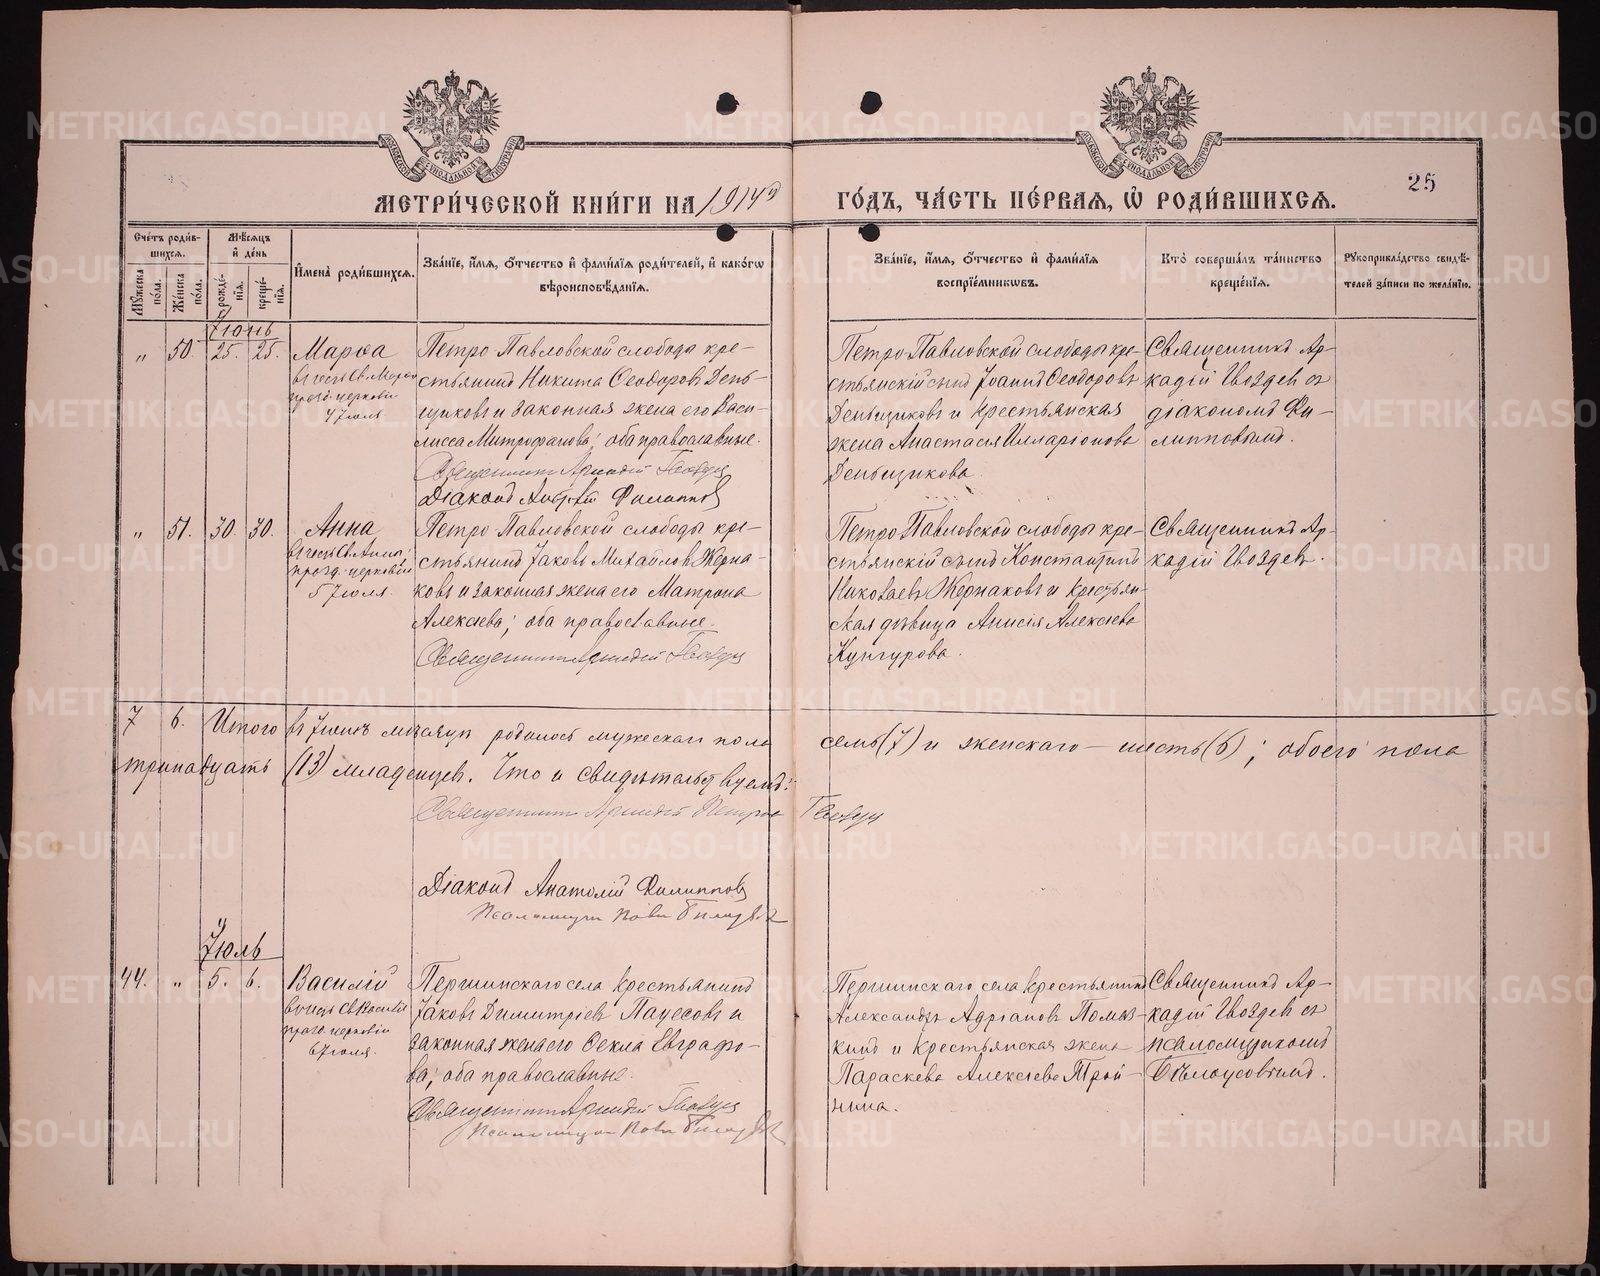 МЕТРИ́ЧЕСКОЙ КНИ́ГИ НА 1914й ГО́ДЪ, ЧА́СТЬ ПЕ́РВАЯ, Ѡ РОДИ́ВШИХСЯ.
25
Сче́тъ роди́вшихся.
Мѣ́сяцъ и де́нь
Имена̀ роди́вшихся.
Зва́нїе, и́мя, о́тчество и фами́лїя роди́телей, и како́гѡ
вѣроисповѣ́данїя.
Зва́нїе, и́мя, о́тчество и фами́лїя
воспрїе́мникѡвъ.
Кто̀ соверша́лъ та́инство
креще́нїя.
Рꙋкоприкла́дство свидѣ́-
телей за́писи по жела́нїю.
Мꙋ́жеска по́ла.
Же́нска по́ла.
рожде́нїя.
креще́нїя.
Іюнь
" 50. 25. 25.
Марѳа
4 Іюля
Петро-Павловской слободы кре-
стьянинъ Никита Ѳеодоровъ День-
щиковъ и законная жена его Васи-
лисса Митрофанова; оба православные.
Священникъ Аркадій Гвоздевъ
Діаконъ Филипповъ
Петро-Павловской слободы кре-
стьянскій сынъ Іоаннъ Ѳеодоровъ
Деньщиковъ и крестьянская
жена Анастасія Илларіонова
Деньщикова
Священникъ Ар-
кадій Гвоздевъ съ
діакономъ Фи-
липповымъ.
" 51. 30. 30.
Анна
въ честь Св. Анны,
5 Іюля.
Петро-Павловской слободы кре-
стьянинъ Іаковъ Михайловъ Жерна-
ковъ и законная жена его Матрона
Алексѣева; оба православные.
Священникъ Аркадій Гвоздевъ
Петро-Павловской слободы кре-
стьянскій сынъ Константинъ
Николаевъ Жернаковъ и крестьян-
ская дѣвица Анисія Алексѣева
Кунгурова.
Священникъ Ар-
кадій Гвоздевъ.
7 6. Итого въ Іюнѣ мѣсяцѣ родилось мужескаго пола семь (7) и женскаго - шесть (6); обоего пола
тринадцать (13) младенцев. Что и свидѣтельствуемъ:
Священникъ Аркадій Петровъ Гвоздевъ
Діаконъ Анатолій Филипповъ
Псаломщикъ
Іюль
44. " 5. 6.
Василій
въ честь Св. Василія
6 Іюля.
Першинскаго села крестьянинъ
Іаковъ Димитріевъ Пауесовъ и
законная жена его Ѳекла Евграфо-
ва; оба православные.
Священникъ Аркадій Гвоздевъ
Псаломщикъ
Першинскаго села крестьянинъ
Александръ Адріановъ
и крестьянская жена
Параскева Алексѣева
Священникъ Ар-
кадій Гвоздевъ съ
псаломщикомъ
Бѣлоусовымъ.
METRIKI.GASO-URAL.RU